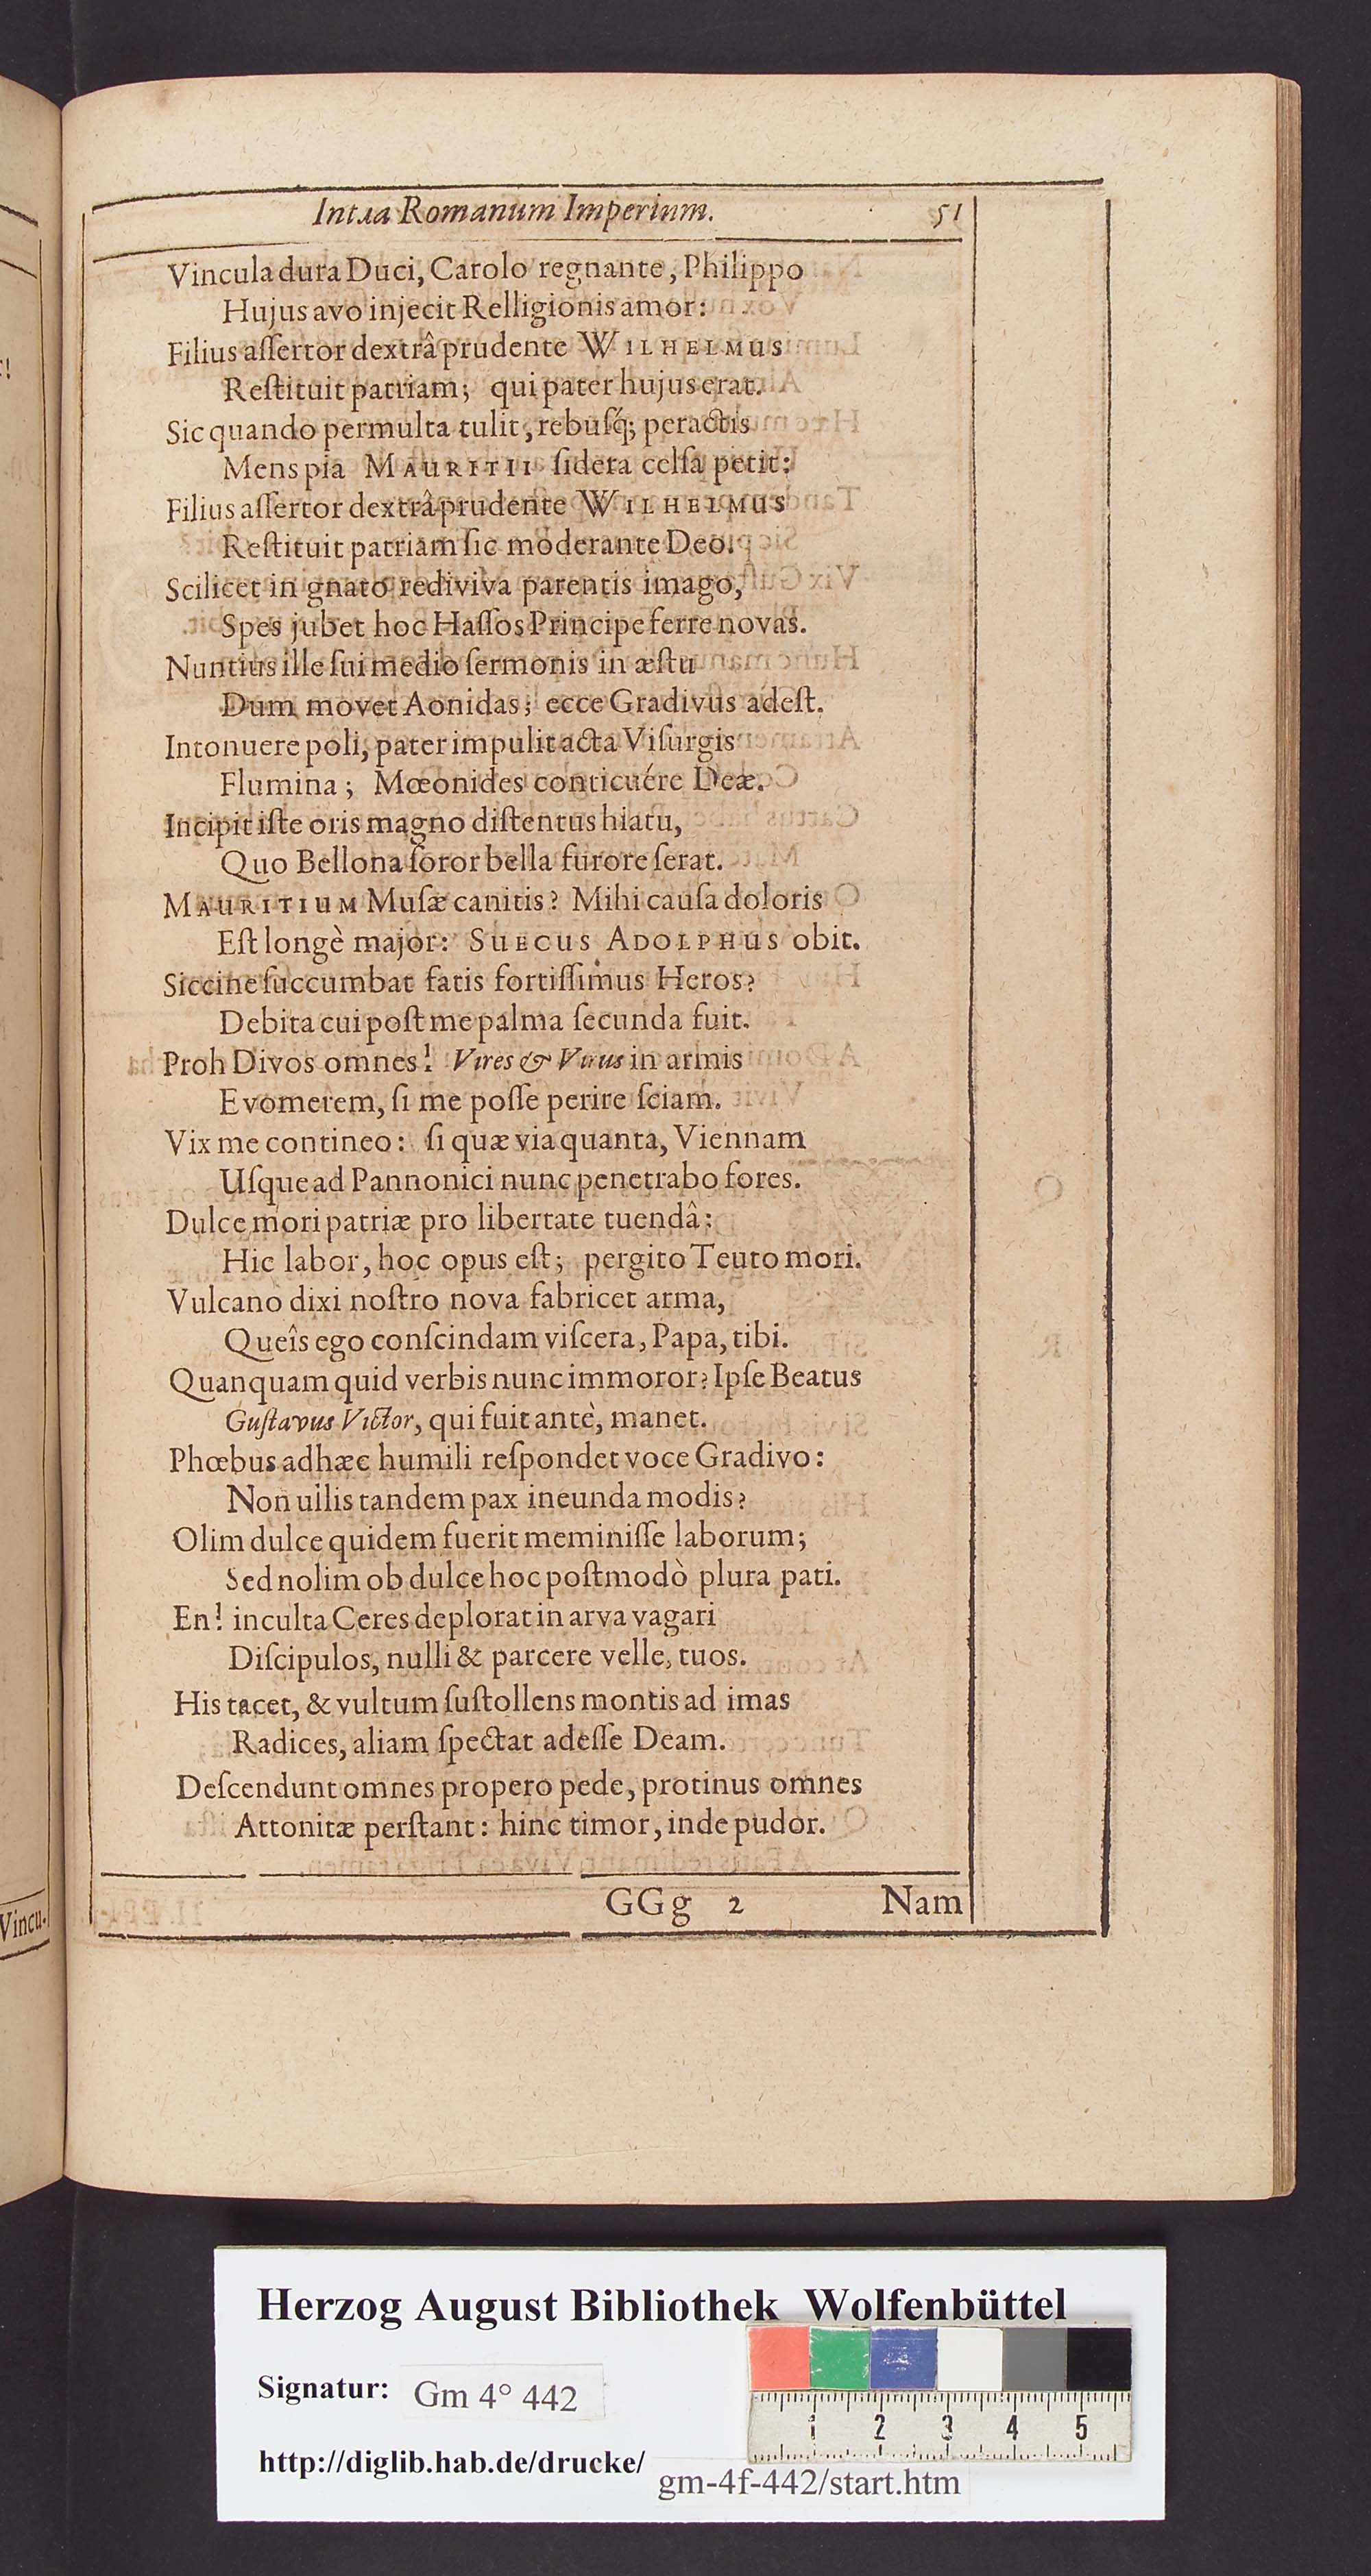 Intɹa Romanum Imperium. 51
Vincula dura Duci, Carolo regnante, Philippo
Hujus avo injecit Relligionis amor:
Filius aſſertor dextrâ prudente WILHELMUS
Reſtituit patriam; qui pater hujus erat.
Sic quando permulta tulit, rebuſq́; peractis
Mens pia MAURITII ſidera celſa petit:
Filius aſſertor dextrâ prudente WILHELMUS
Reſtituit patriam ſic moderante Deo.
Scilicet in gnato rediviva parentis imago,
Spes jubet hoc Haſſos Principe ferre novas.
Nuntius ille ſui medio ſermonis in æſtu
Dum movet Aonidas; ecce Gradivus adeſt.
Intonuere poli, pater impulit acta Viſurgis
Flumina; Mœonides conticuére Deæ.
Incipit iſte oris magno diſtentus hiatu,
Quo Bellona ſoror bella furore ſerat.
MAURITIUM Muſæ canitis? Mihi cauſa doloris
Eſt longè major: SUECUS ADOLPHUS obit.
Siccine ſuccumbat fatis fortiſſimus Heros?
Debita cui poſt me palma ſecunda fuit.
Proh Divos omnes! Vires & Virus in armis
Evomerem, ſi me poſſe perire ſciam.
Vix me contineo: ſi quæ via quanta, Viennam
Uſque ad Pannonici nunc penetrabo fores.
Dulce mori patriæ pro libertate tuendâ:
Hic labor, hoc opus eſt; pergito Teuto mori.
Vulcano dixi noſtro nova fabricet arma,
Queîs ego conſcindam viſcera, Papa, tibi.
Quanquam quid verbis nunc immoror? Ipſe Beatus
Guſtavus Victor, qui fuit antè, manet.
Phœbus ad hæc humili reſpondet voce Gradivo:
Non ullis tandem pax ineunda modis?
Olim dulce quidem fuerit meminiſſe laborum;
Sed nolim ob dulce hoc poſtmodò plura pati.
En! inculta Ceres deplorat in arva vagari
Diſcipulos, nulli & parcere velle, tuos.
His tacet, & vultum ſuſtollens montis ad imas
Radices, aliam ſpectat adeſſe Deam.
Deſcendunt omnes propero pede, protinus omnes
Attonitæ perſtant: hinc timor, inde pudor.
GGg 2 Nam
Vincu-
Herzog August Bibliothek Wolfenbüttel
Signatur: Gm 4° 442
http://diglib.hab.de/drucke/ gm-4f-442/start.htm
1 2 3 4 5